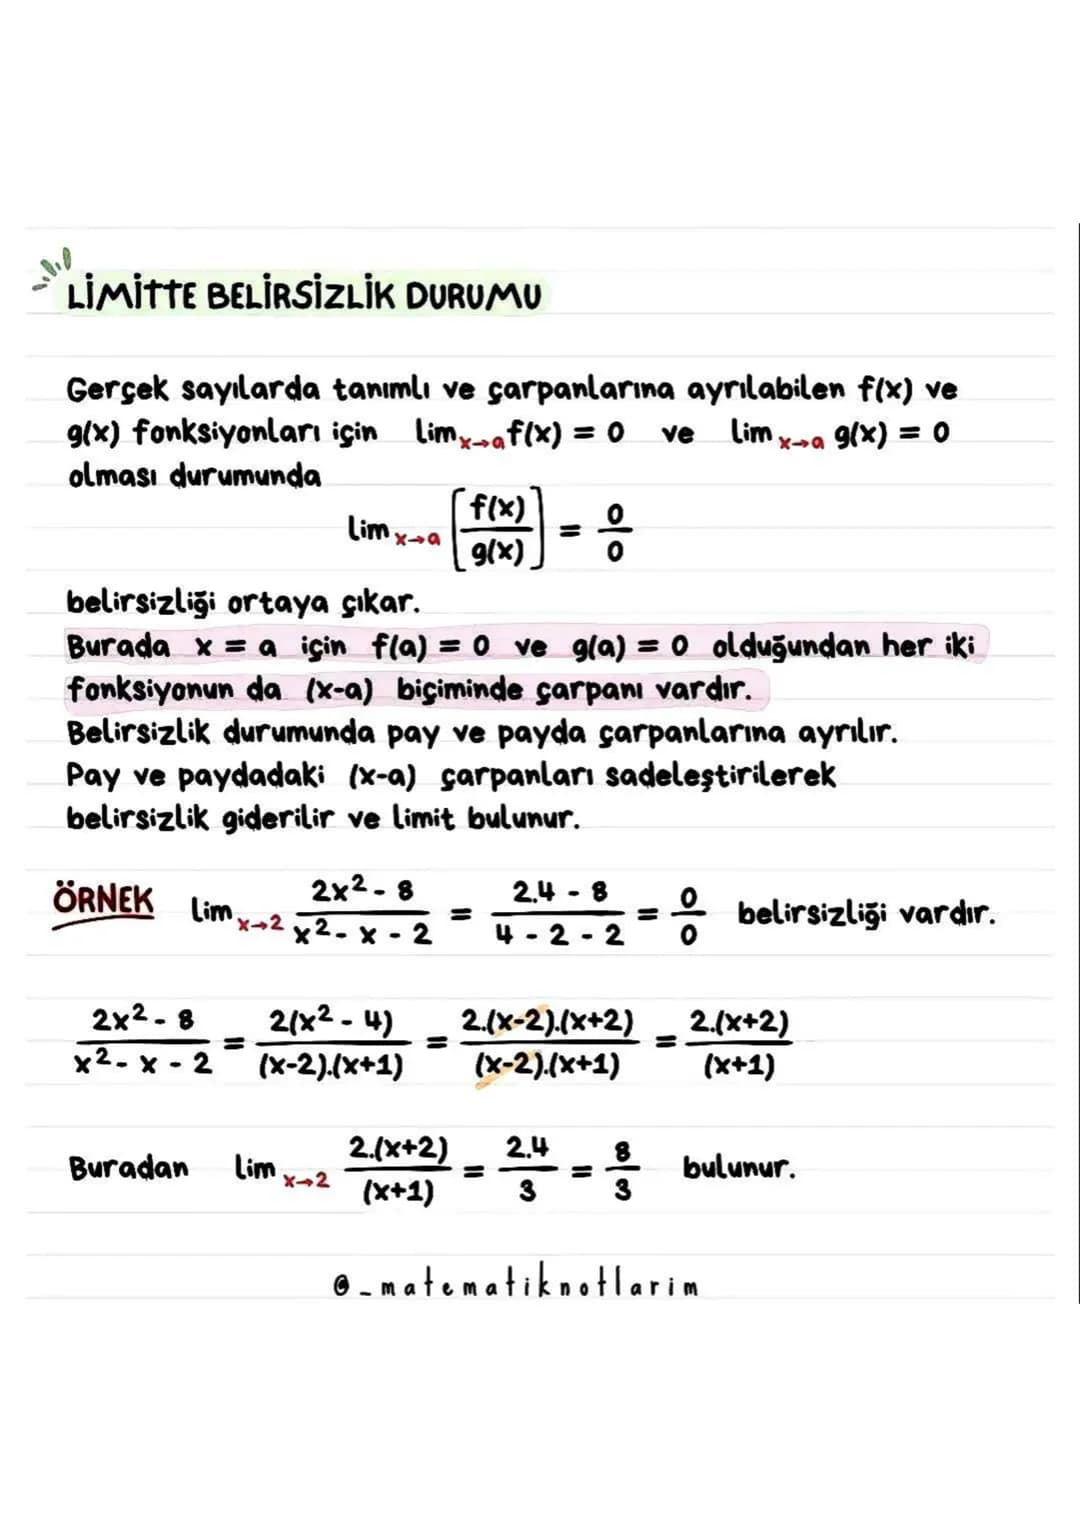 LİMİTTE BELİRSİZLİK DURUMU
Gerçek sayılarda tanımlı ve çarpanlarına ayrılabilen f(x) ve
g(x) fonksiyonları için lim x→a f(x) = 0 ve lim x→a g(x) = 0
olması durumunda
lim x→a [f(x)/g(x)] = 0/0
belirsizliği ortaya çıkar.
Burada x = a için f(a) = 0 ve g(a) = 0 olduğundan her iki
fonksiyonun da (x-a) biçiminde çarpanı vardır.
Belirsizlik durumunda pay ve payda çarpanlarına ayrılır.
Pay ve paydadaki (x-a) çarpanları sadeleştirilerek
belirsizlik giderilir ve limit bulunur.
ÖRNEK lim x→2 (2x² - 8)/(x² - x - 2) = (2.4 - 8)/(4 - 2 - 2) = 0/0 belirsizliği vardır.
(2x² - 8)/(x² - x - 2) = 2(x² - 4)/(x-2).(x+1) = 2.(x-2).(x+2)/(x-2).(x+1) = 2.(x+2)/(x+1)
Buradan lim x→2 2.(x+2)/(x+1) = 2.4/3 = 8/3 bulunur.
@_matematiknotlarim